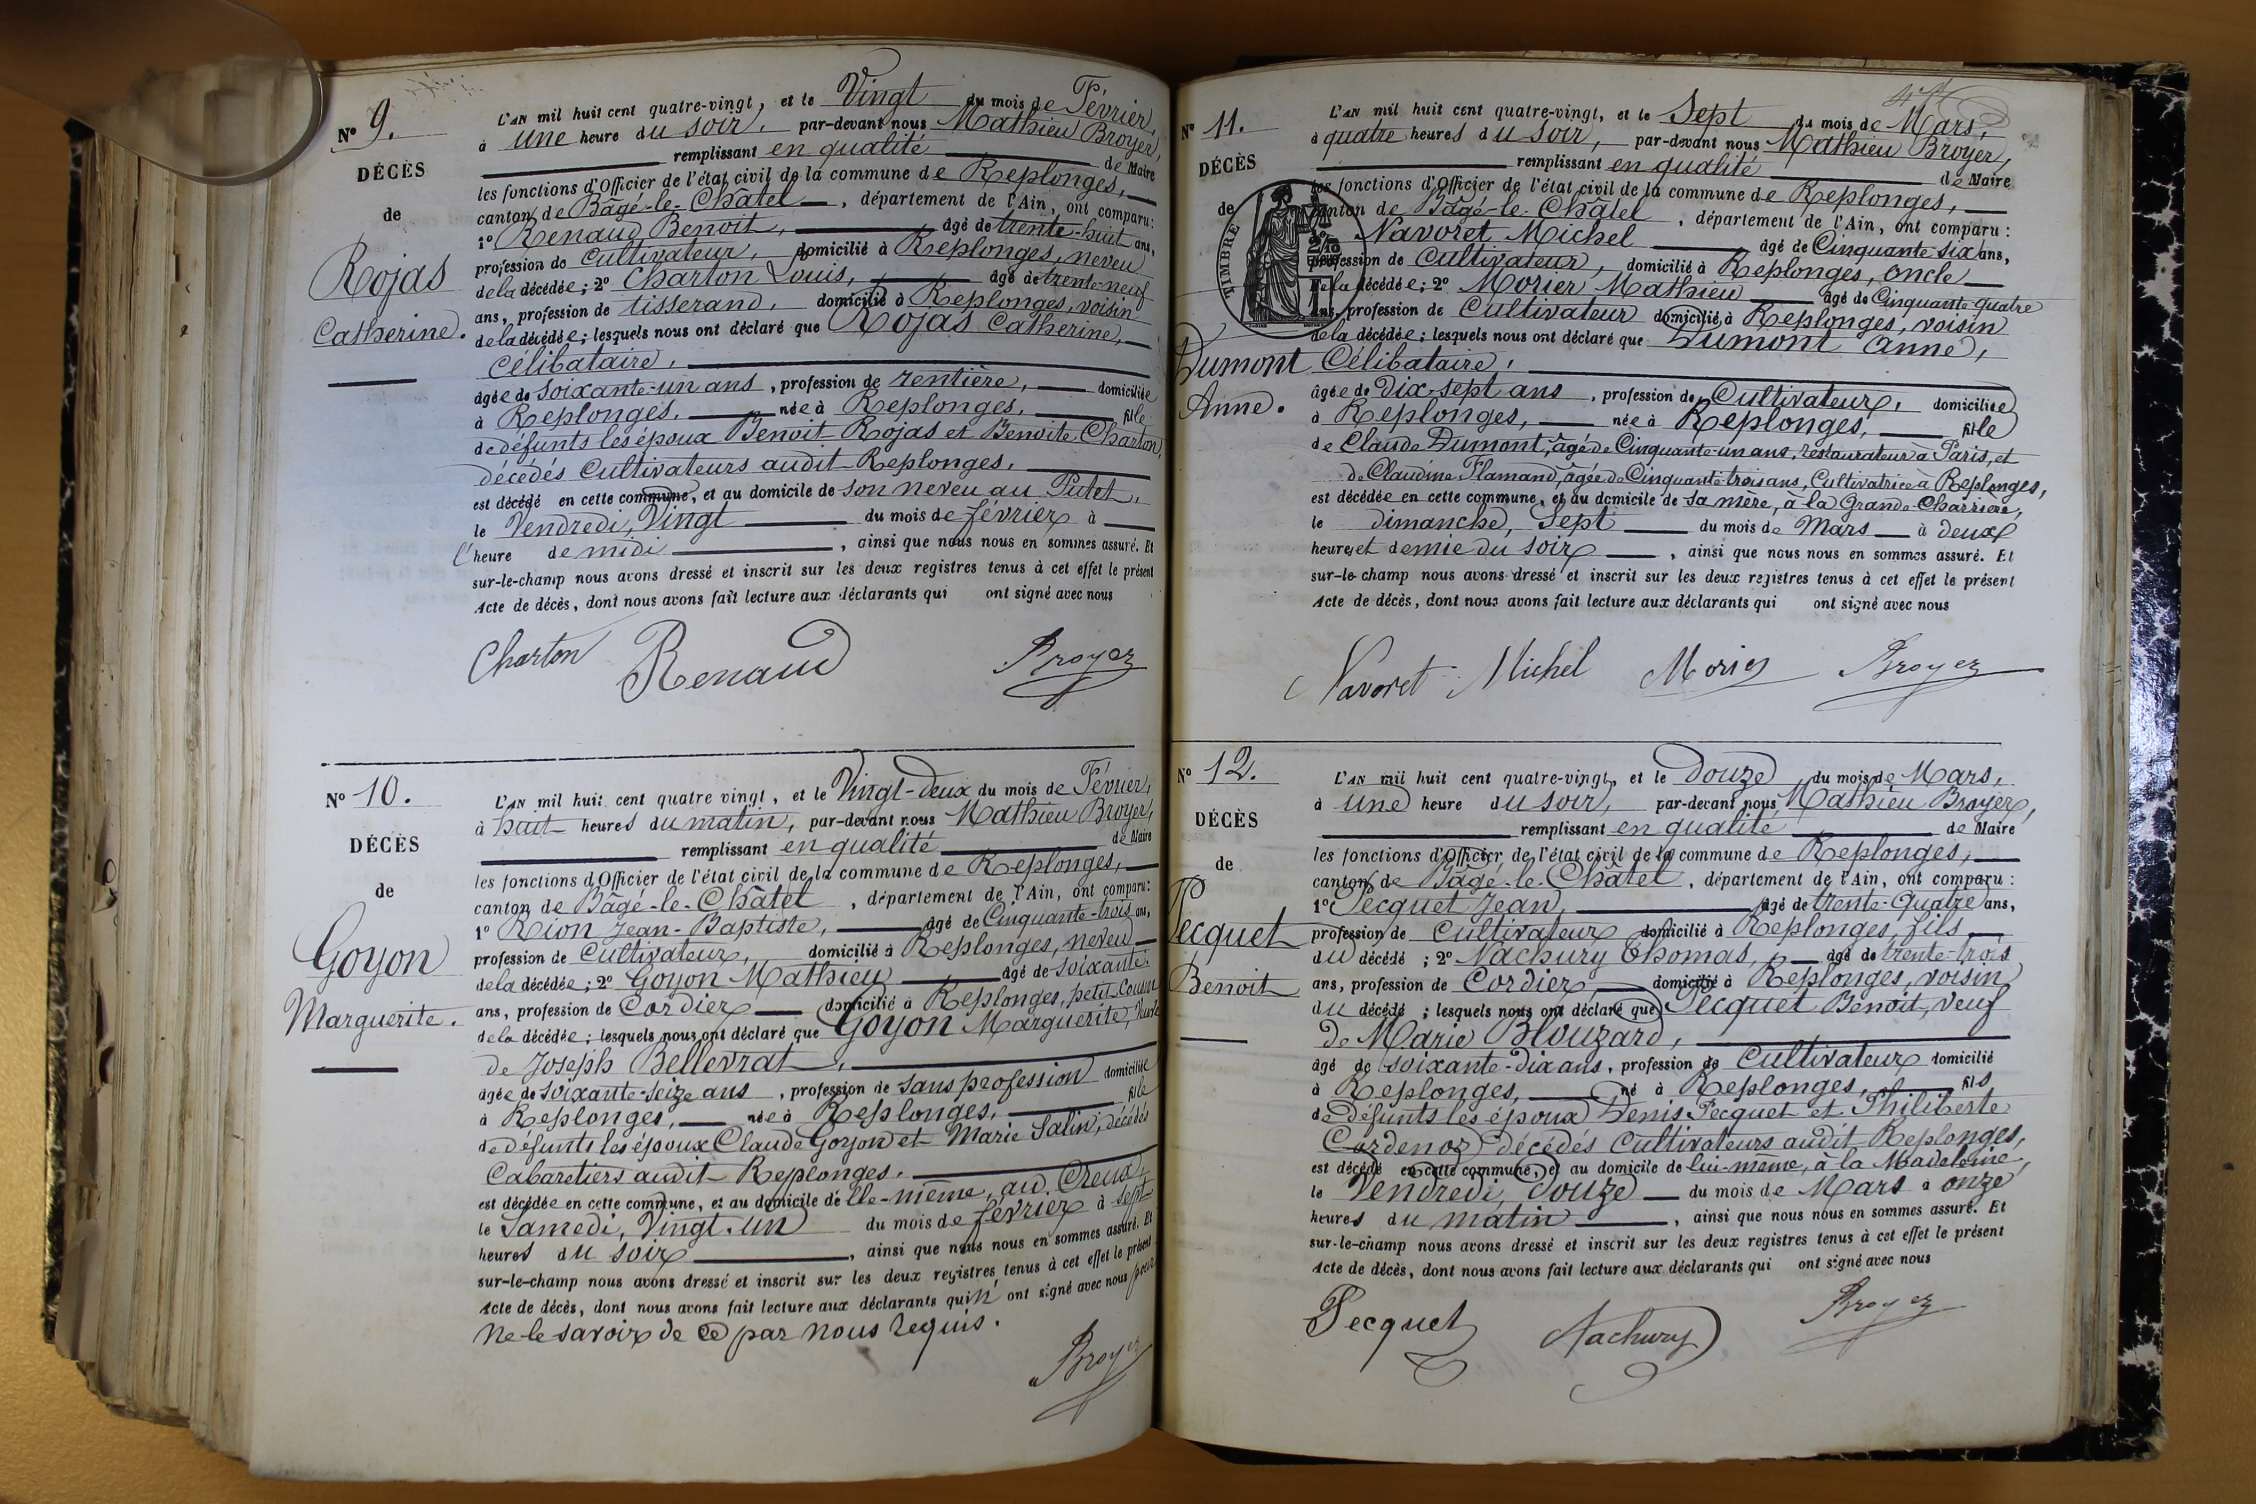 N° 9.
DÉCÈS
de
Rojas
Catherine.
L'AN mil huit cent quatre-vingt, et le Vingt du mois de Février,
à une heure du soir, par-devant nous Mathieu Broyer,
remplissant en qualité de Maire
les fonctions d'Officier de l'état civil de la commune de Replonges,
canton de Bâgé-le-Châtel, département de l'Ain, ont comparu:
1° Renaud Benoit, âgé de trente-huit ans,
profession de cultivateur, domicilié à Replonges, neveu
de la décédée; 2° Charton Louis, âgé de trente-neuf
ans, profession de tisserand, domicilié à Replonges, voisin
de la décédée; lesquels nous ont déclaré que Rojas Catherine,
Célibataire,
âgée de soixante-un ans, profession de rentière, domiciliée
à Replonges, née à Replonges, fille
de défunts les époux Benoit Rojas et Benoite Charton,
décédés Cultivateurs audit Replonges,
est décédé en cette commune, et au domicile de son neveu au Putet,
le Vendredi, Vingt du mois de février à
l'heure de midi, ainsi que nous nous en sommes assuré. Et
sur-le-champ nous avons dressé et inscrit sur les deux registres tenus à cet effet le présent
Acte de décès, dont nous avons fait lecture aux déclarants qui ont signé avec nous
Charton Renaud Broyer
N° 10.
DÉCÈS
de
Goyon
Marguerite.
L'AN mil huit cent quatre vingt, et le Vingt-deux du mois de Février,
à huit heures du matin, par-devant nous Mathieu Broyer,
remplissant en qualité de Maire
les fonctions d'Officier de l'état civil de la commune de Replonges,
canton de Bâgé-le-Châtel, département de l'Ain, ont comparu:
1° Rion Jean-Baptiste, âgé de Cinquante-trois ans,
profession de Cultivateur, domicilié à Replonges, neveu
de la décédée; 2° Goyon Mathieu âgé de soixante
ans, profession de Cordier domicilié à Replonges, petit-Cousin
de la décédée; lesquels nous ont déclaré que Goyon Marguerite, Veuve
de Joseph Bellevrat,
âgée de soixante-seize ans, profession de sans profession domiciliée
à Replonges, née à Replonges, fille
de défunts les époux Claude Goyon et Marie Salin, décédés
Cabaretiers audit Replonges.
est décédée en cette commune, et au domicile de elle-même, au Creux,
le Samedi, Vingt-un du mois de février à sept
heures du soir, ainsi que nous nous en sommes assuré. Et
sur-le-champ nous avons dressé et inscrit sur les deux registres tenus à cet effet le présent
Acte de décès, dont nous avons fait lecture aux déclarants qui n'ont signé avec nous pour
ne le savoir de ce par nous requis.
Broyer
N° 11.
DÉCÈS
de
TIMBRE
Dumont
Anne.
L'AN mil huit cent quatre-vingt, et le Sept du mois de Mars,
à quatre heures du soir, par-devant nous Mathieu Broyer,
remplissant en qualité de Maire
les fonctions d'Officier de l'état civil de la commune de Replonges,
canton de Bâgé-le-Châtel, département de l'Ain, ont comparu:
Navoret Michel âgé de Cinquante-six ans,
profession de Cultivateur, domicilié à Replonges, oncle
de la décédée; 2° Morier Mathieu âgé de Cinquante-quatre
ans, profession de Cultivateur domicilié à Replonges, voisin
de la décédée; lesquels nous ont déclaré que Dumont Anne,
Célibataire,
âgée de dix-sept ans, profession de Cultivateur, domiciliée
à Replonges, née à Replonges, fille
de Claude Dumont, âgé de Cinquante-un ans, restaurateur à Paris, et
de Claudine Flamand, âgée de Cinquante-trois ans, Cultivatrice à Replonges,
est décédée en cette commune, et au domicile de sa mère, à la Grande-Charrière,
le dimanche, Sept du mois de Mars à deux
heures et demie du soir, ainsi que nous nous en sommes assuré. Et
sur-le-champ nous avons dressé et inscrit sur les deux registres tenus à cet effet le présent
Acte de décès, dont nous avons fait lecture aux déclarants qui ont signé avec nous
Navoret Michel Morier Broyer
N° 12.
DÉCÈS
de
Pecquet
Benoit
L'AN mil huit cent quatre-vingt, et le douze du mois de Mars,
à une heure du soir, par-devant nous Mathieu Broyer,
remplissant en qualité de Maire
les fonctions d'Officier de l'état civil de la commune de Replonges,
canton de Bâgé-le-Châtel, département de l'Ain, ont comparu:
1° Pecquet Jean, âgé de trente-quatre ans,
profession de cultivateur domicilié à Replonges, fils
du décédé; 2° Nachury Thomas, âgé de trente-trois
ans, profession de Cordier, domicilié à Replonges, voisin
du décédé; lesquels nous ont déclaré que Pecquet Benoit, veuf
de Marie Blouzard,
âgé de soixante-dix ans, profession de Cultivateur domicilié
à Replonges, né à Replonges, fils
de défunts les époux Denis Pecquet et Philiberte
Cordenoz décédés Cultivateurs audit Replonges,
est décédé en cette commune, et au domicile de lui-même, à la Madeleine,
le Vendredi, douze du mois de Mars à onze
heures du matin, ainsi que nous nous en sommes assuré. Et
sur-le-champ nous avons dressé et inscrit sur les deux registres tenus à cet effet le présent
Acte de décès, dont nous avons fait lecture aux déclarants qui ont signé avec nous
Pecquet Nachury Broyer